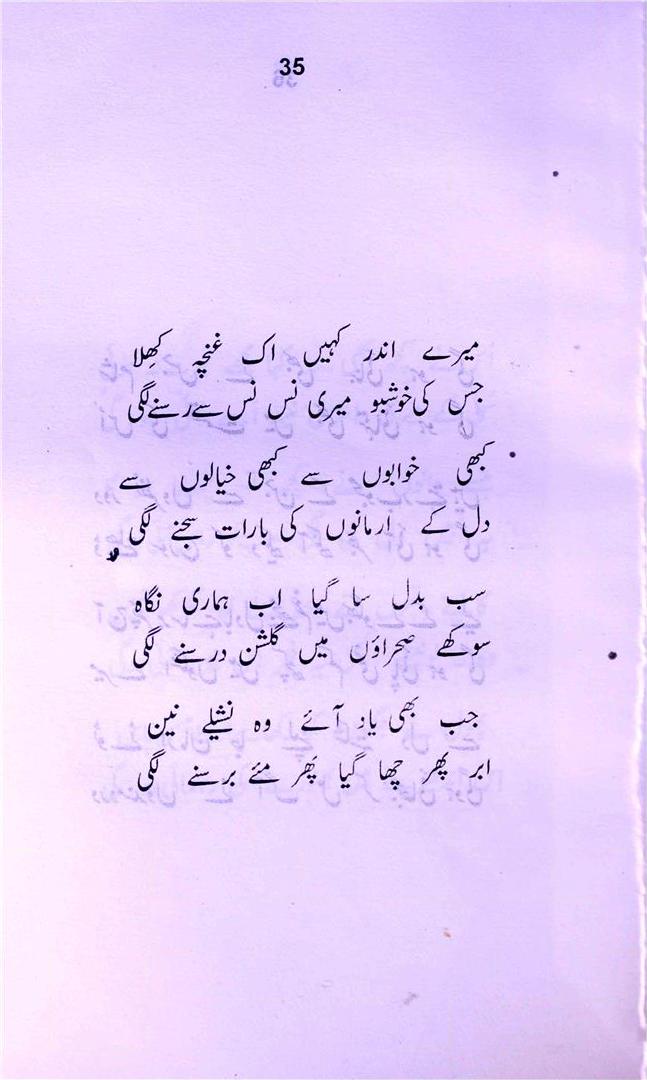 35
میرے اندر کہیں اک غنچہ کھِلا
جس کی خوشبو میری نس نس سے رسنے لگی
کبھی خوابوں سے کبھی خیالوں سے
دل کے ارمانوں کی بارات سجنے لگی
سب بدل سا گیا اب ہماری نگاہ
سوکھے صحراؤں میں گلشن درسنے لگی
جب بھی یاد آئے وہ نشیلے نین
ابر پھر چھا گیا پھر مئے برسنے لگی